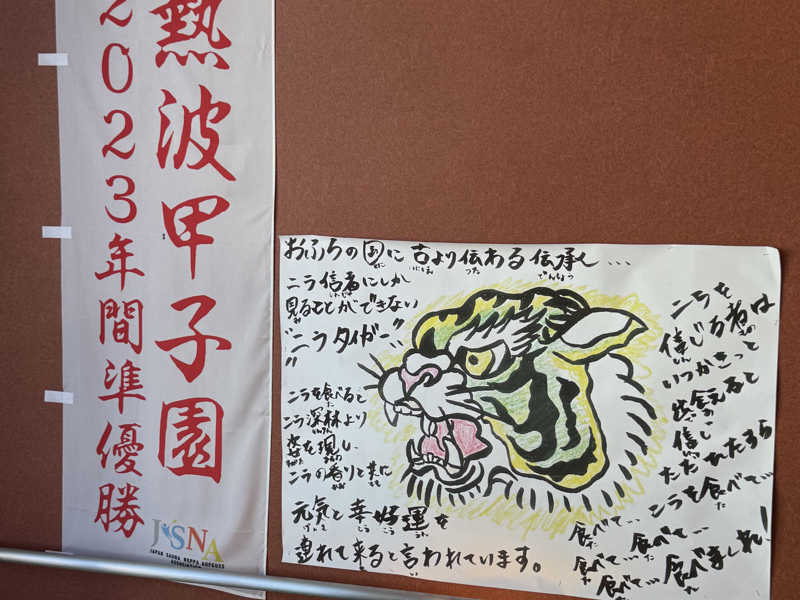 熱波甲子園
2023年間準優勝
JSNA
JAPAN SAUNA NEPPA AUFGUSS
ASSOCIATION
おふろの国に古より伝わる伝承…
くに いにしえ つた でんしょう
ニラ信者にしか
見ることができない
み
"ニラタイガー"
ニラを食べると
た
ニラ深林より
姿を現し
ニラの香りと共に
元気と幸せ
運を
連れて来ると言われています。
ニラを
信じる者は
しん もの
いつかきっと
会えると
信じ
しん
ただひたすら
ニラを食べて…
た
食べて…
食べて…
食べて…
食べまくれ!